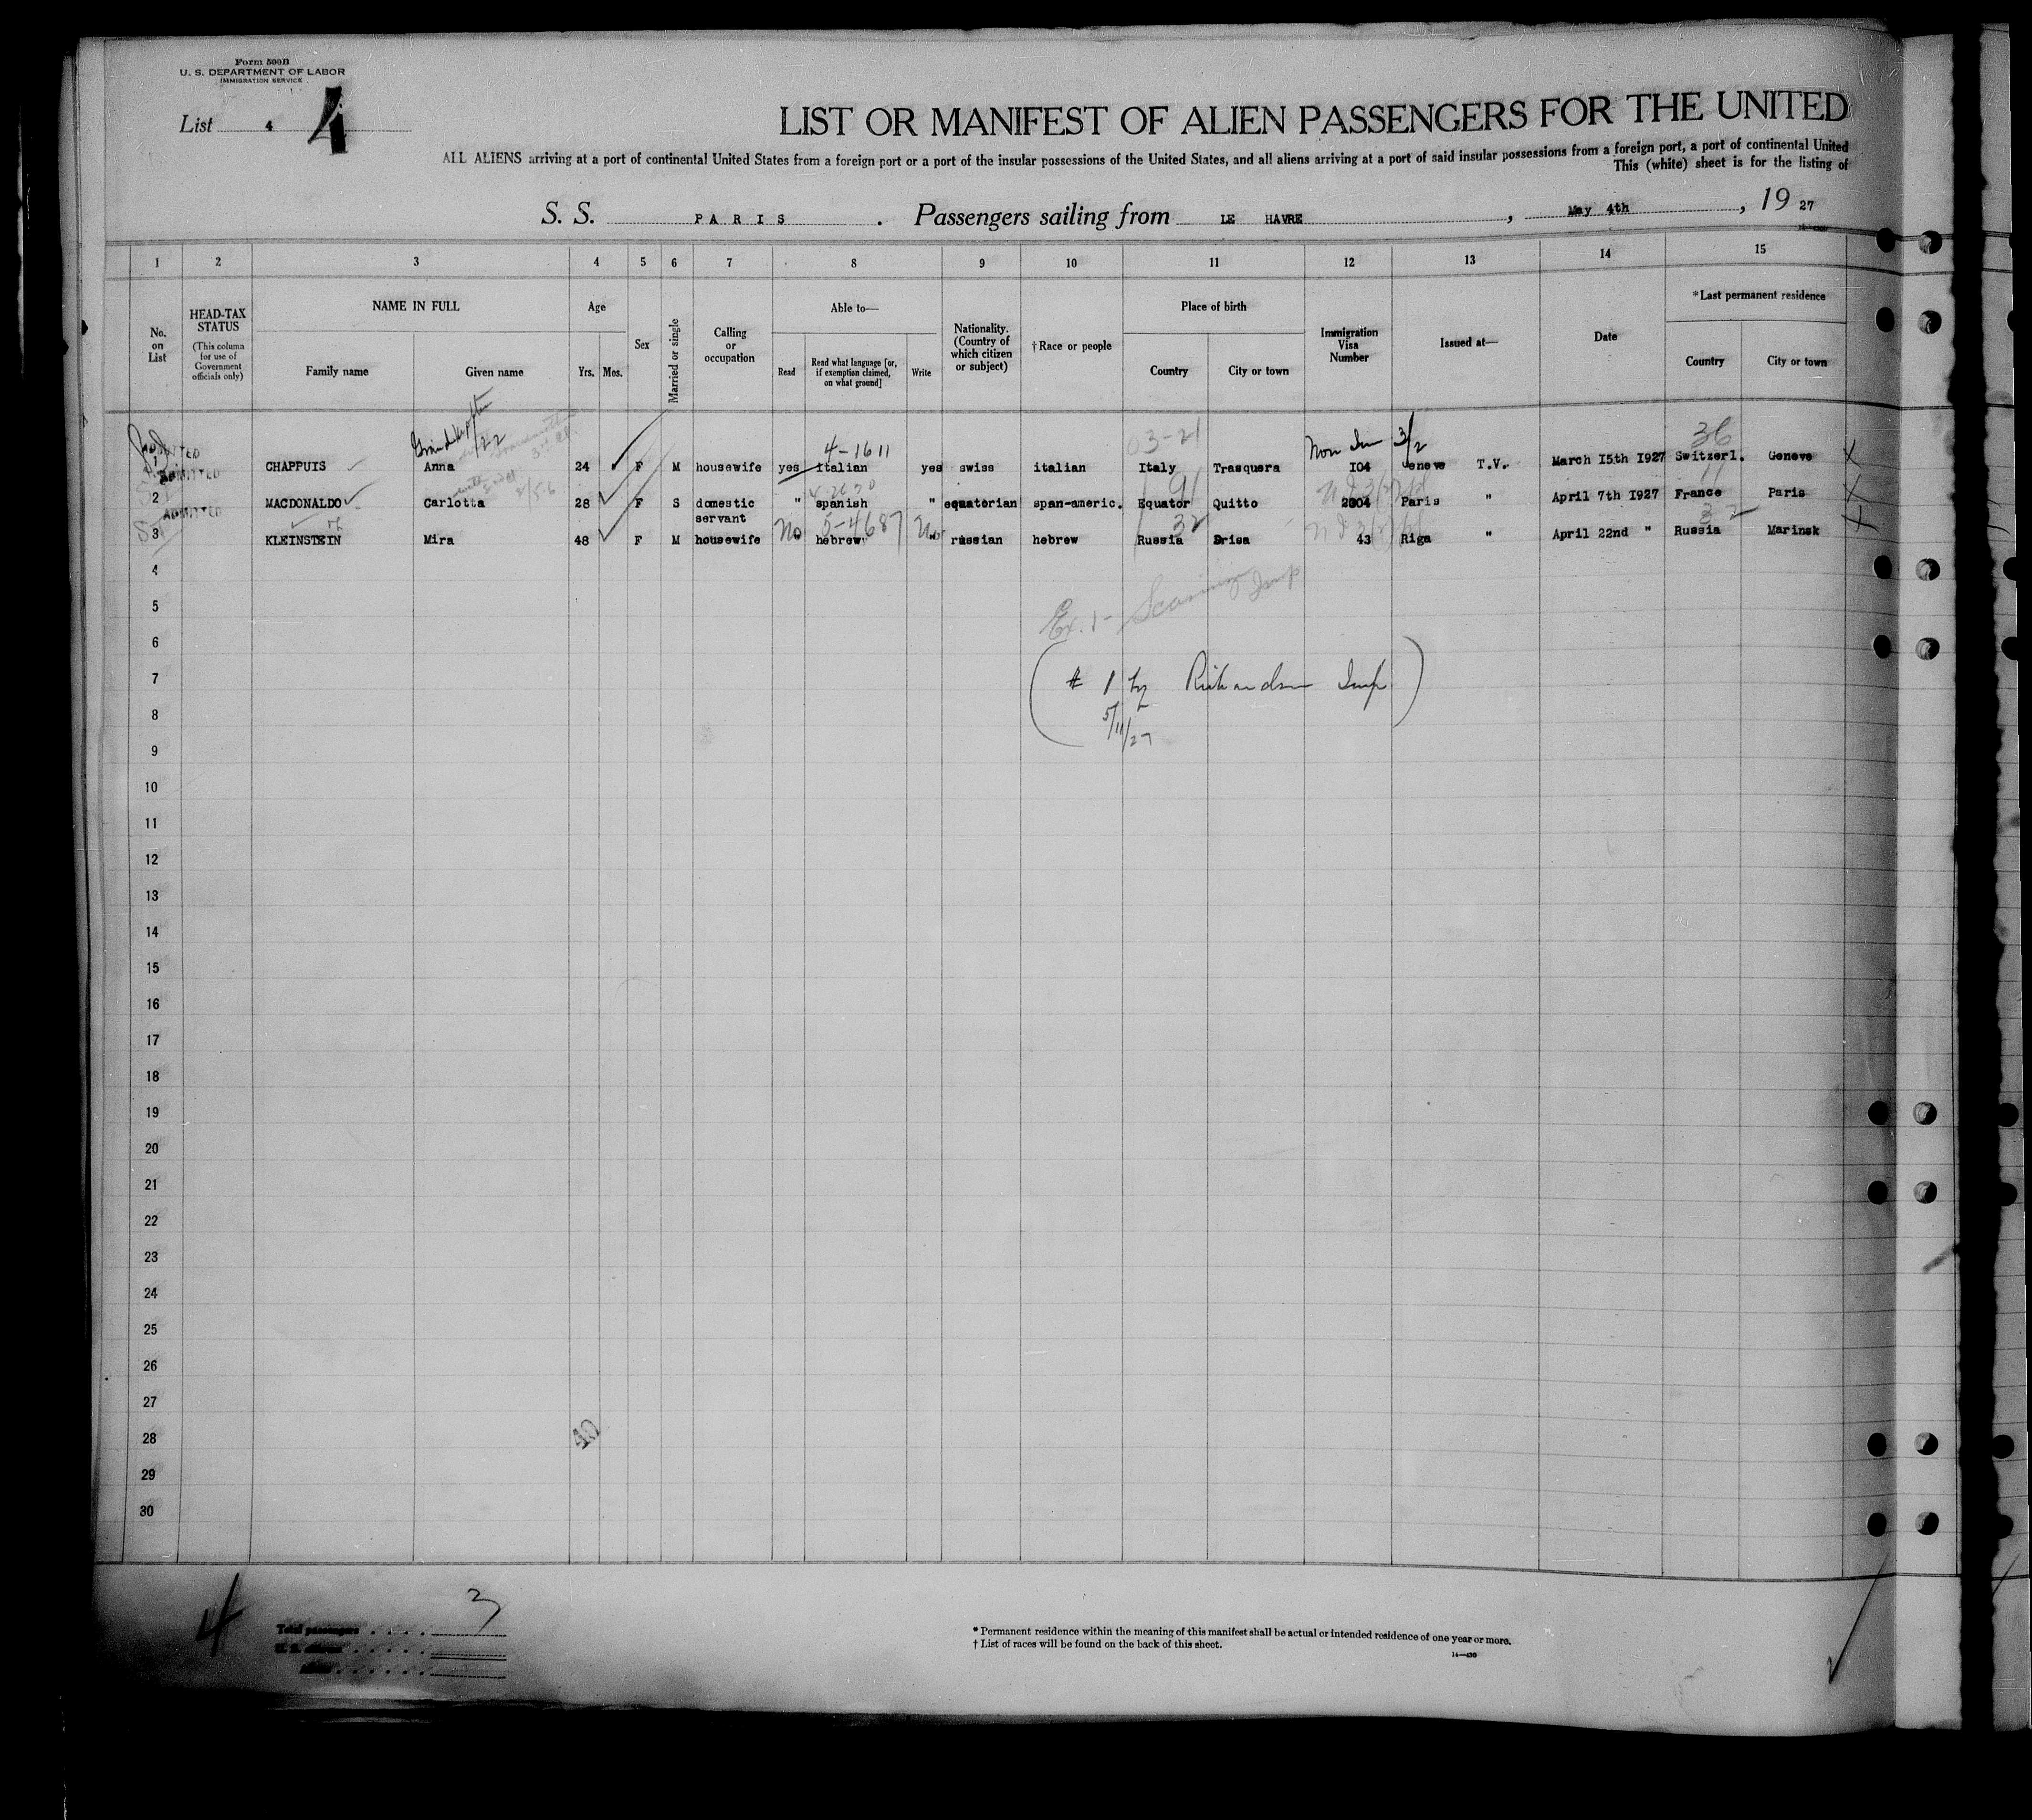 Form 500B
U. S. DEPARTMENT OF LABOR
IMMIGRATION SERVICE
List 4 4
LIST OR MANIFEST OF ALIEN PASSENGERS FOR THE UNITED
ALL ALIENS arriving at a port of continental United States from a foreign port or a port of the insular possessions of the United States, and all aliens arriving at a port of said insular possessions from a foreign port, a port of continental United
This (white) sheet is for the listing of
S. S. PARIS. Passengers sailing from LE HAVRE, May 4th, 19 27
1 2 3 4 5 6 7 8 9 10 11 12 13 14 15
No. on List
HEAD-TAX STATUS
(This column for use of Government officials only)
NAME IN FULL
Family name Given name
Age
Yrs. Mos.
Sex
Married or single
Calling or occupation
Able to—
Read
Read what language [or, if exemption claimed, on what ground]
Write
Nationality. (Country of which citizen or subject)
†Race or people
Place of birth
Country City or town
Immigration Visa Number
Issued at—
Date
*Last permanent residence
Country City or town
4-1611 03-21 Non Im 3/2 36
1 ADMITTED CHAPPUIS Anna 24 F M housewife yes italian yes swiss italian Italy Trasquera I04 Geneve T.V. March I5th I927 Switzerl. Geneve X
91
2 ADMITTED MACDONALDO Carlotta 28 F S domestic servant " spanish " equatorian span-americ. Equator Quitto 2004 Paris " April 7th 1927 France Paris X
No 5-4687 No 32
3 KLEINSTEIN Mira 48 F M housewife " hebrew " russian hebrew Russia Drisa 43 Riga " April 22nd " Russia Marinsk X
4
5
Ex. 1- Insp
6
7
(# 1 by Richardson Insp)
8
5/11/27
9
10
11
12
13
14
15
16
17
18
19
20
21
22
23
24
25
26
27
28
40
29
30
4
3
Total passengers
* Permanent residence within the meaning of this manifest shall be actual or intended residence of one year or more.
† List of races will be found on the back of this sheet.